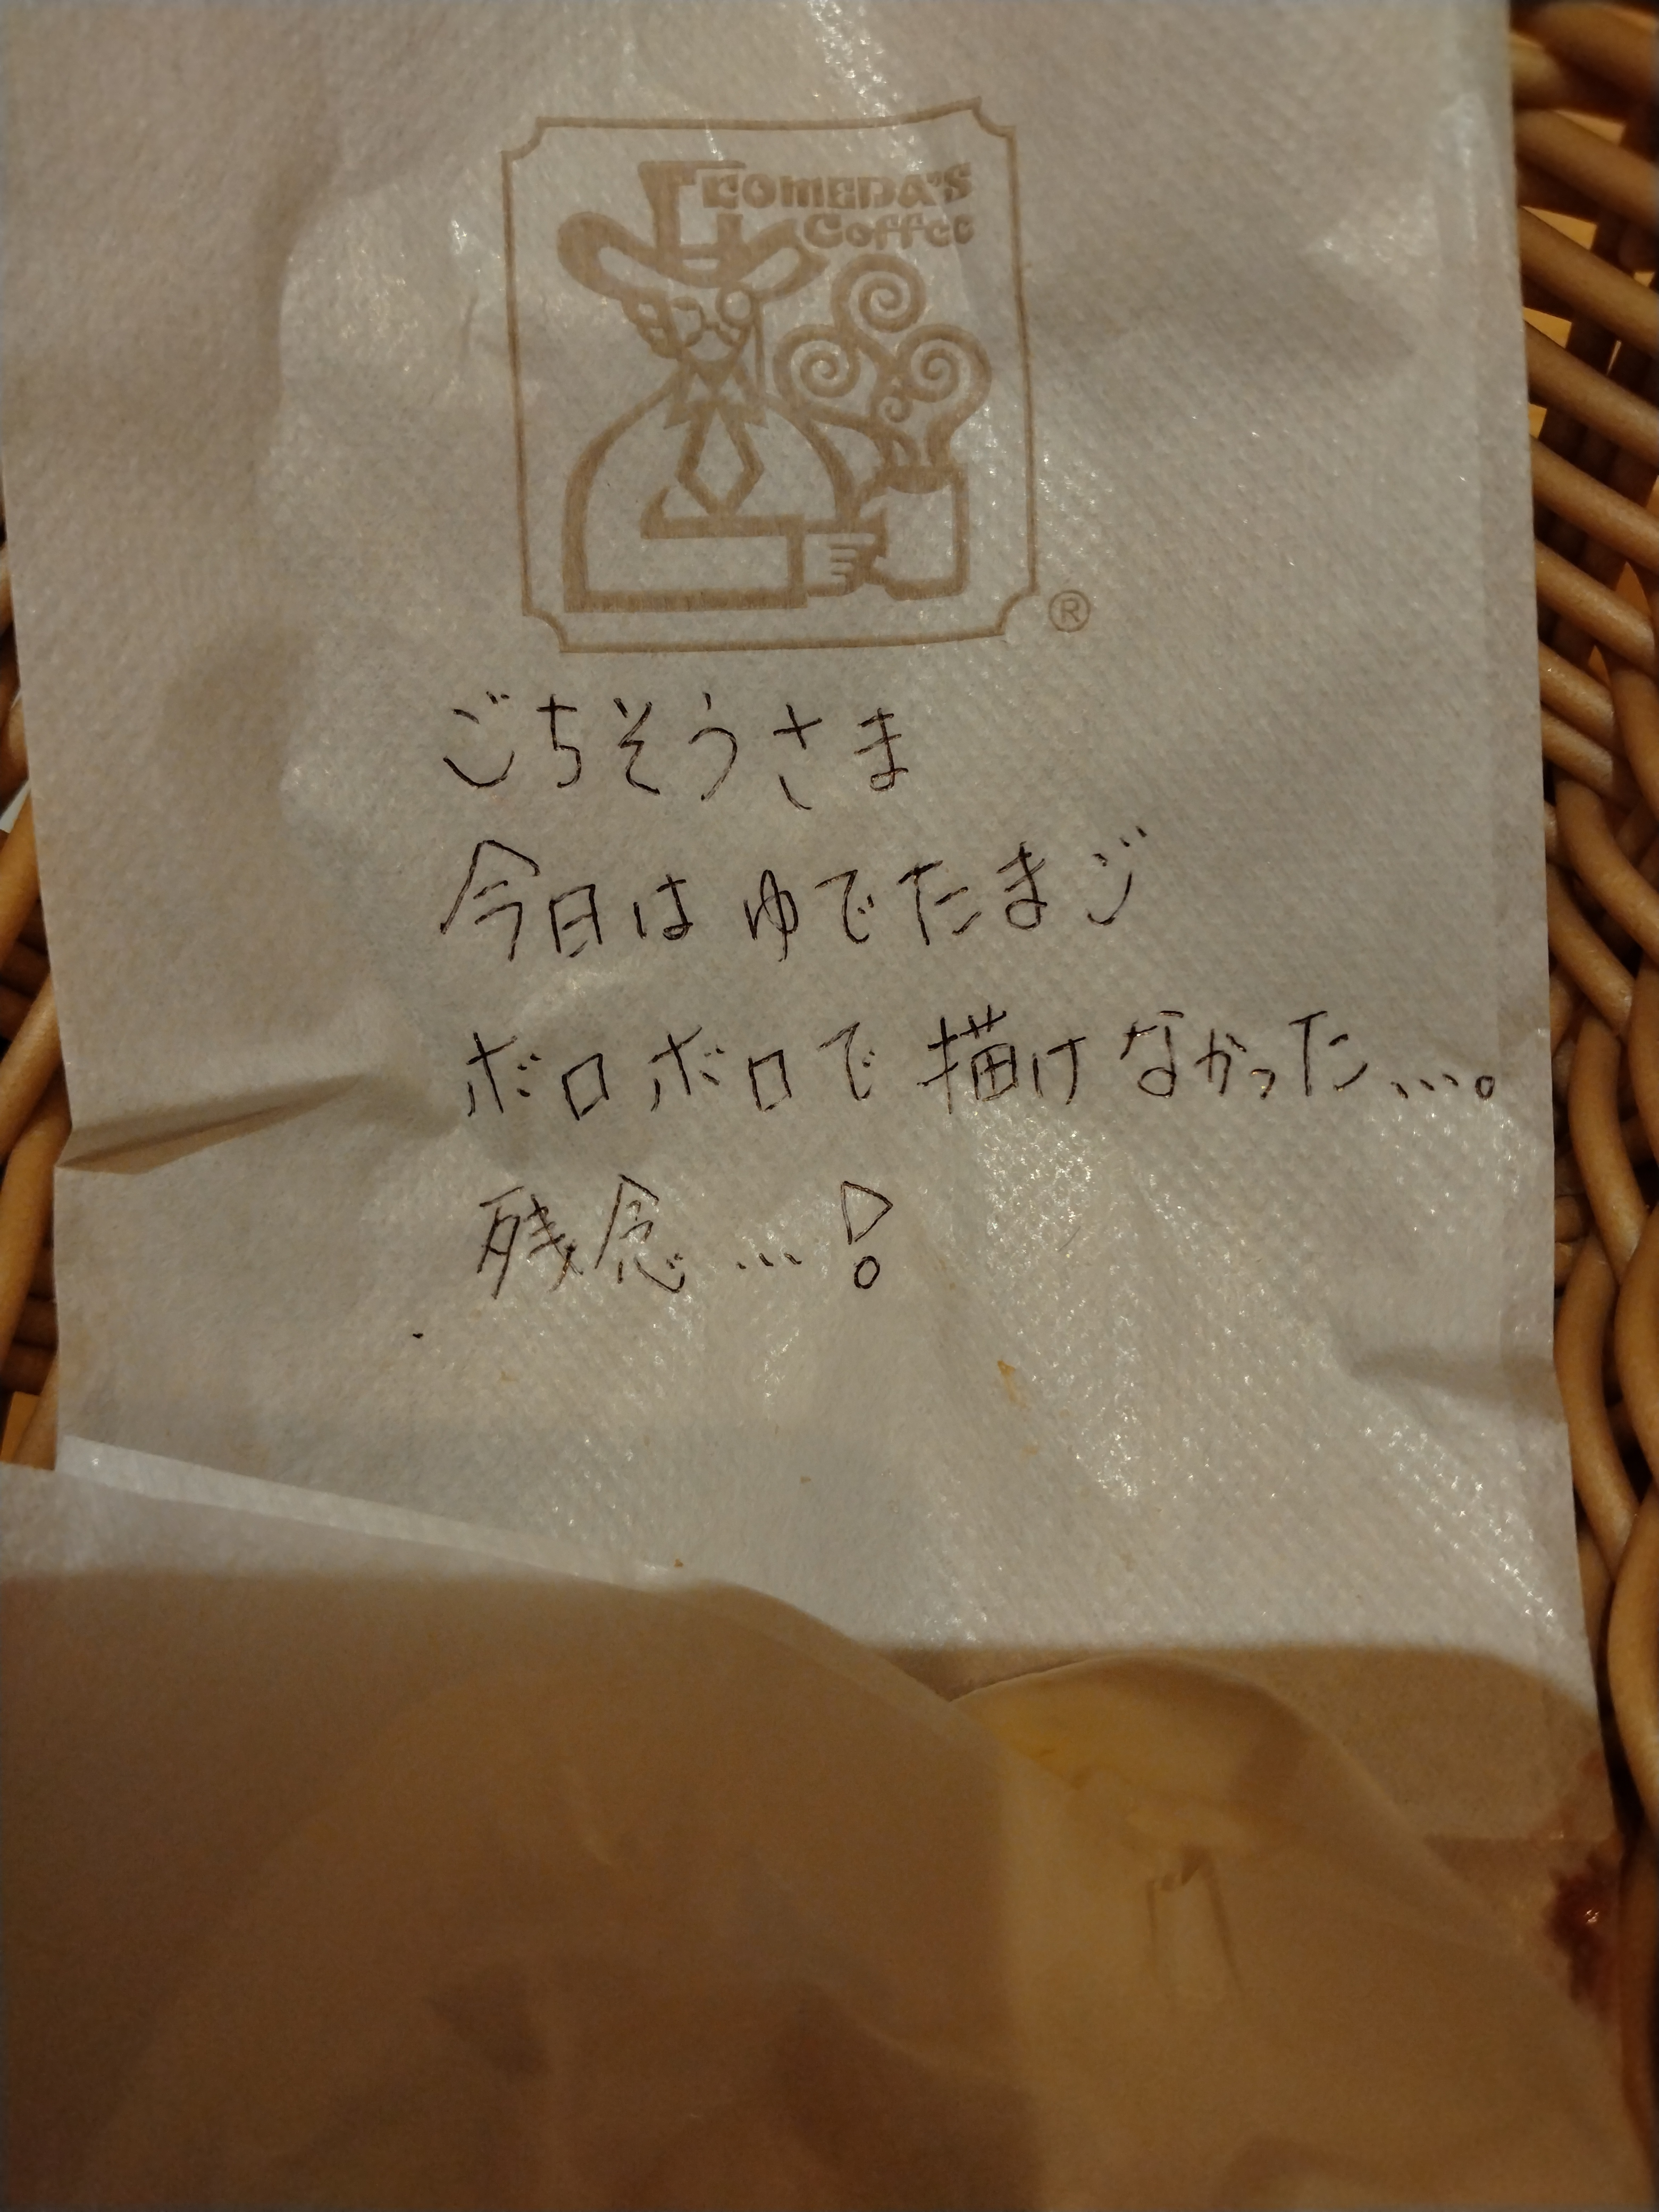 KOMEDA'S
Coffee
®
ごちそうさま
今日は ゆでたまご
ボロボロで 描けなかった…。
残念…!